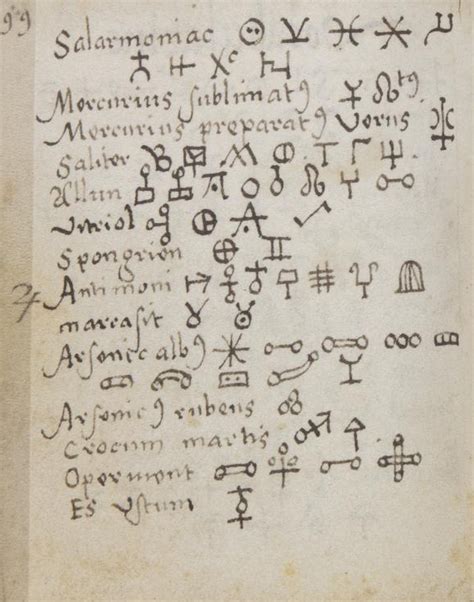 Salarmoniac
Mercurius sublimatꝰ
Mercurius preparatꝰ Verus
Saliter
Allun
Vitriol
Spongrien
Antimoni
marcasit
Arsenic albꝰ
Arsenicꝰ rubens
Crocum martis
Operment
Es Vstum